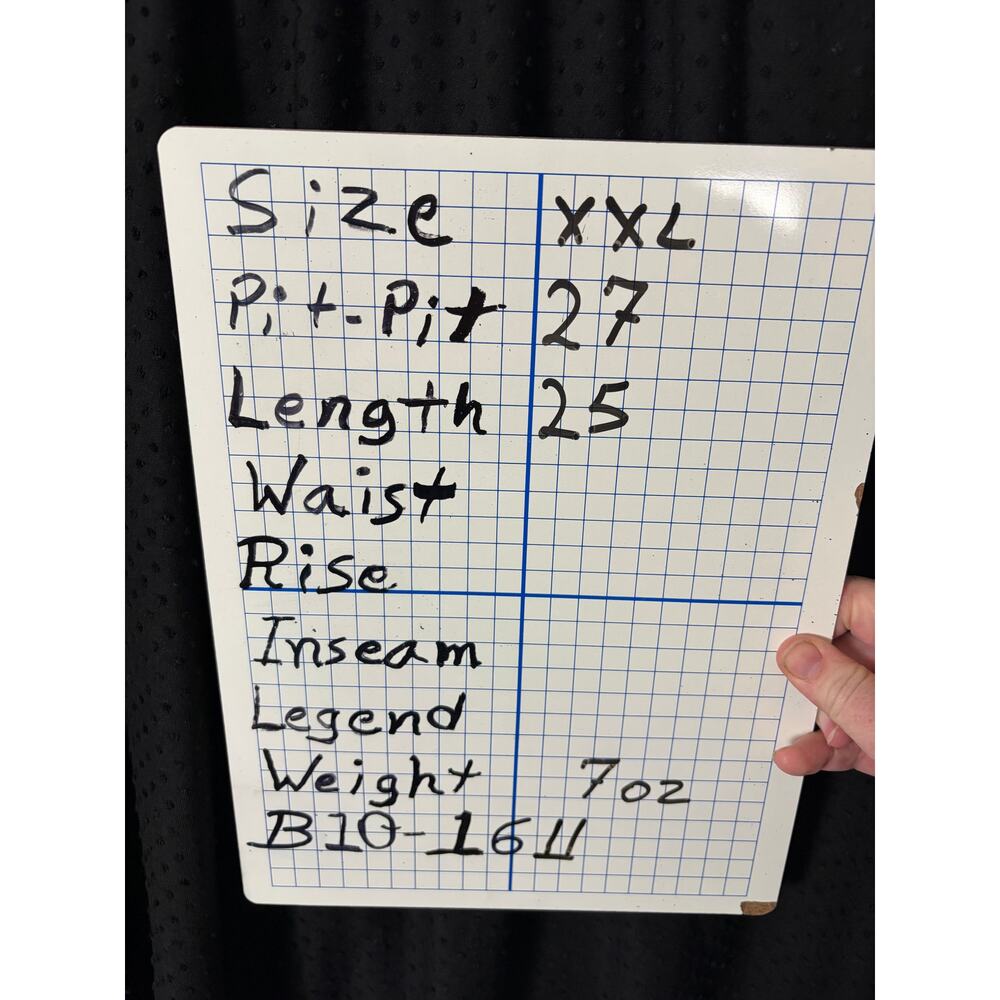 Size XXL
Pit-Pit 27
Length 25
Waist
Rise
Inseam
Legend
Weight 7oz
B10-1611